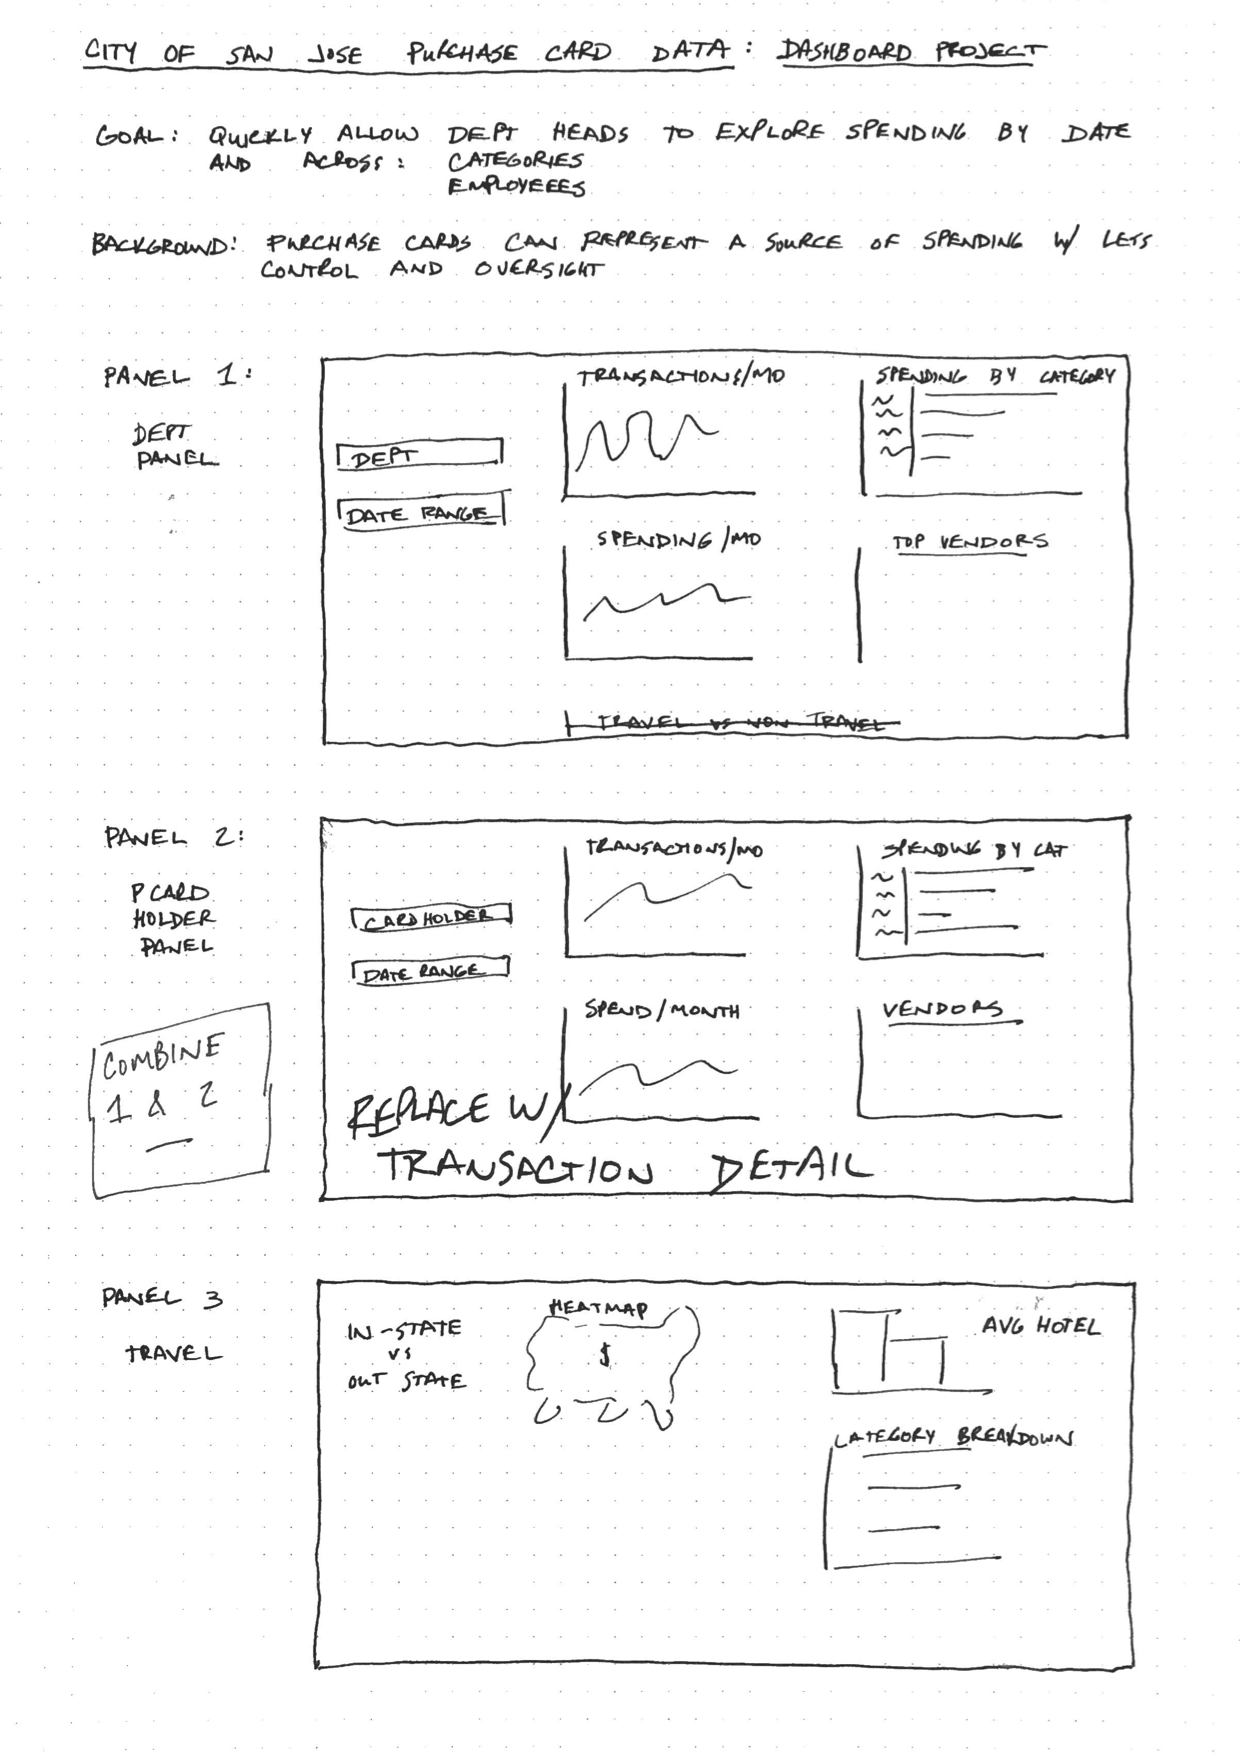 CITY OF SAN JOSE PURCHASE CARD DATA: DASHBOARD PROJECT
GOAL: QUICKLY ALLOW DEPT HEADS TO EXPLORE SPENDING BY DATE
AND ACROSS: CATEGORIES
EMPLOYEEES
BACKGROUND: PURCHASE CARDS CAN REPRESENT A SOURCE OF SPENDING W/ LESS
CONTROL AND OVERSIGHT
PANEL 1:
DEPT
PANEL
DEPT
DATE RANGE
TRANSACTIONS/MO
SPENDING BY CATEGORY
SPENDING/MO
TOP VENDORS
TRAVEL VS NON TRAVEL
PANEL 2:
P CARD
HOLDER
PANEL
COMBINE
1 & 2
CARD HOLDER
DATE RANGE
TRANSACTIONS/MO
SPENDING BY CAT
SPEND/MONTH
VENDORS
REPLACE W/
TRANSACTION DETAIL
PANEL 3
TRAVEL
IN-STATE
VS
OUT STATE
HEATMAP
$
AVG HOTEL
CATEGORY BREAKDOWN